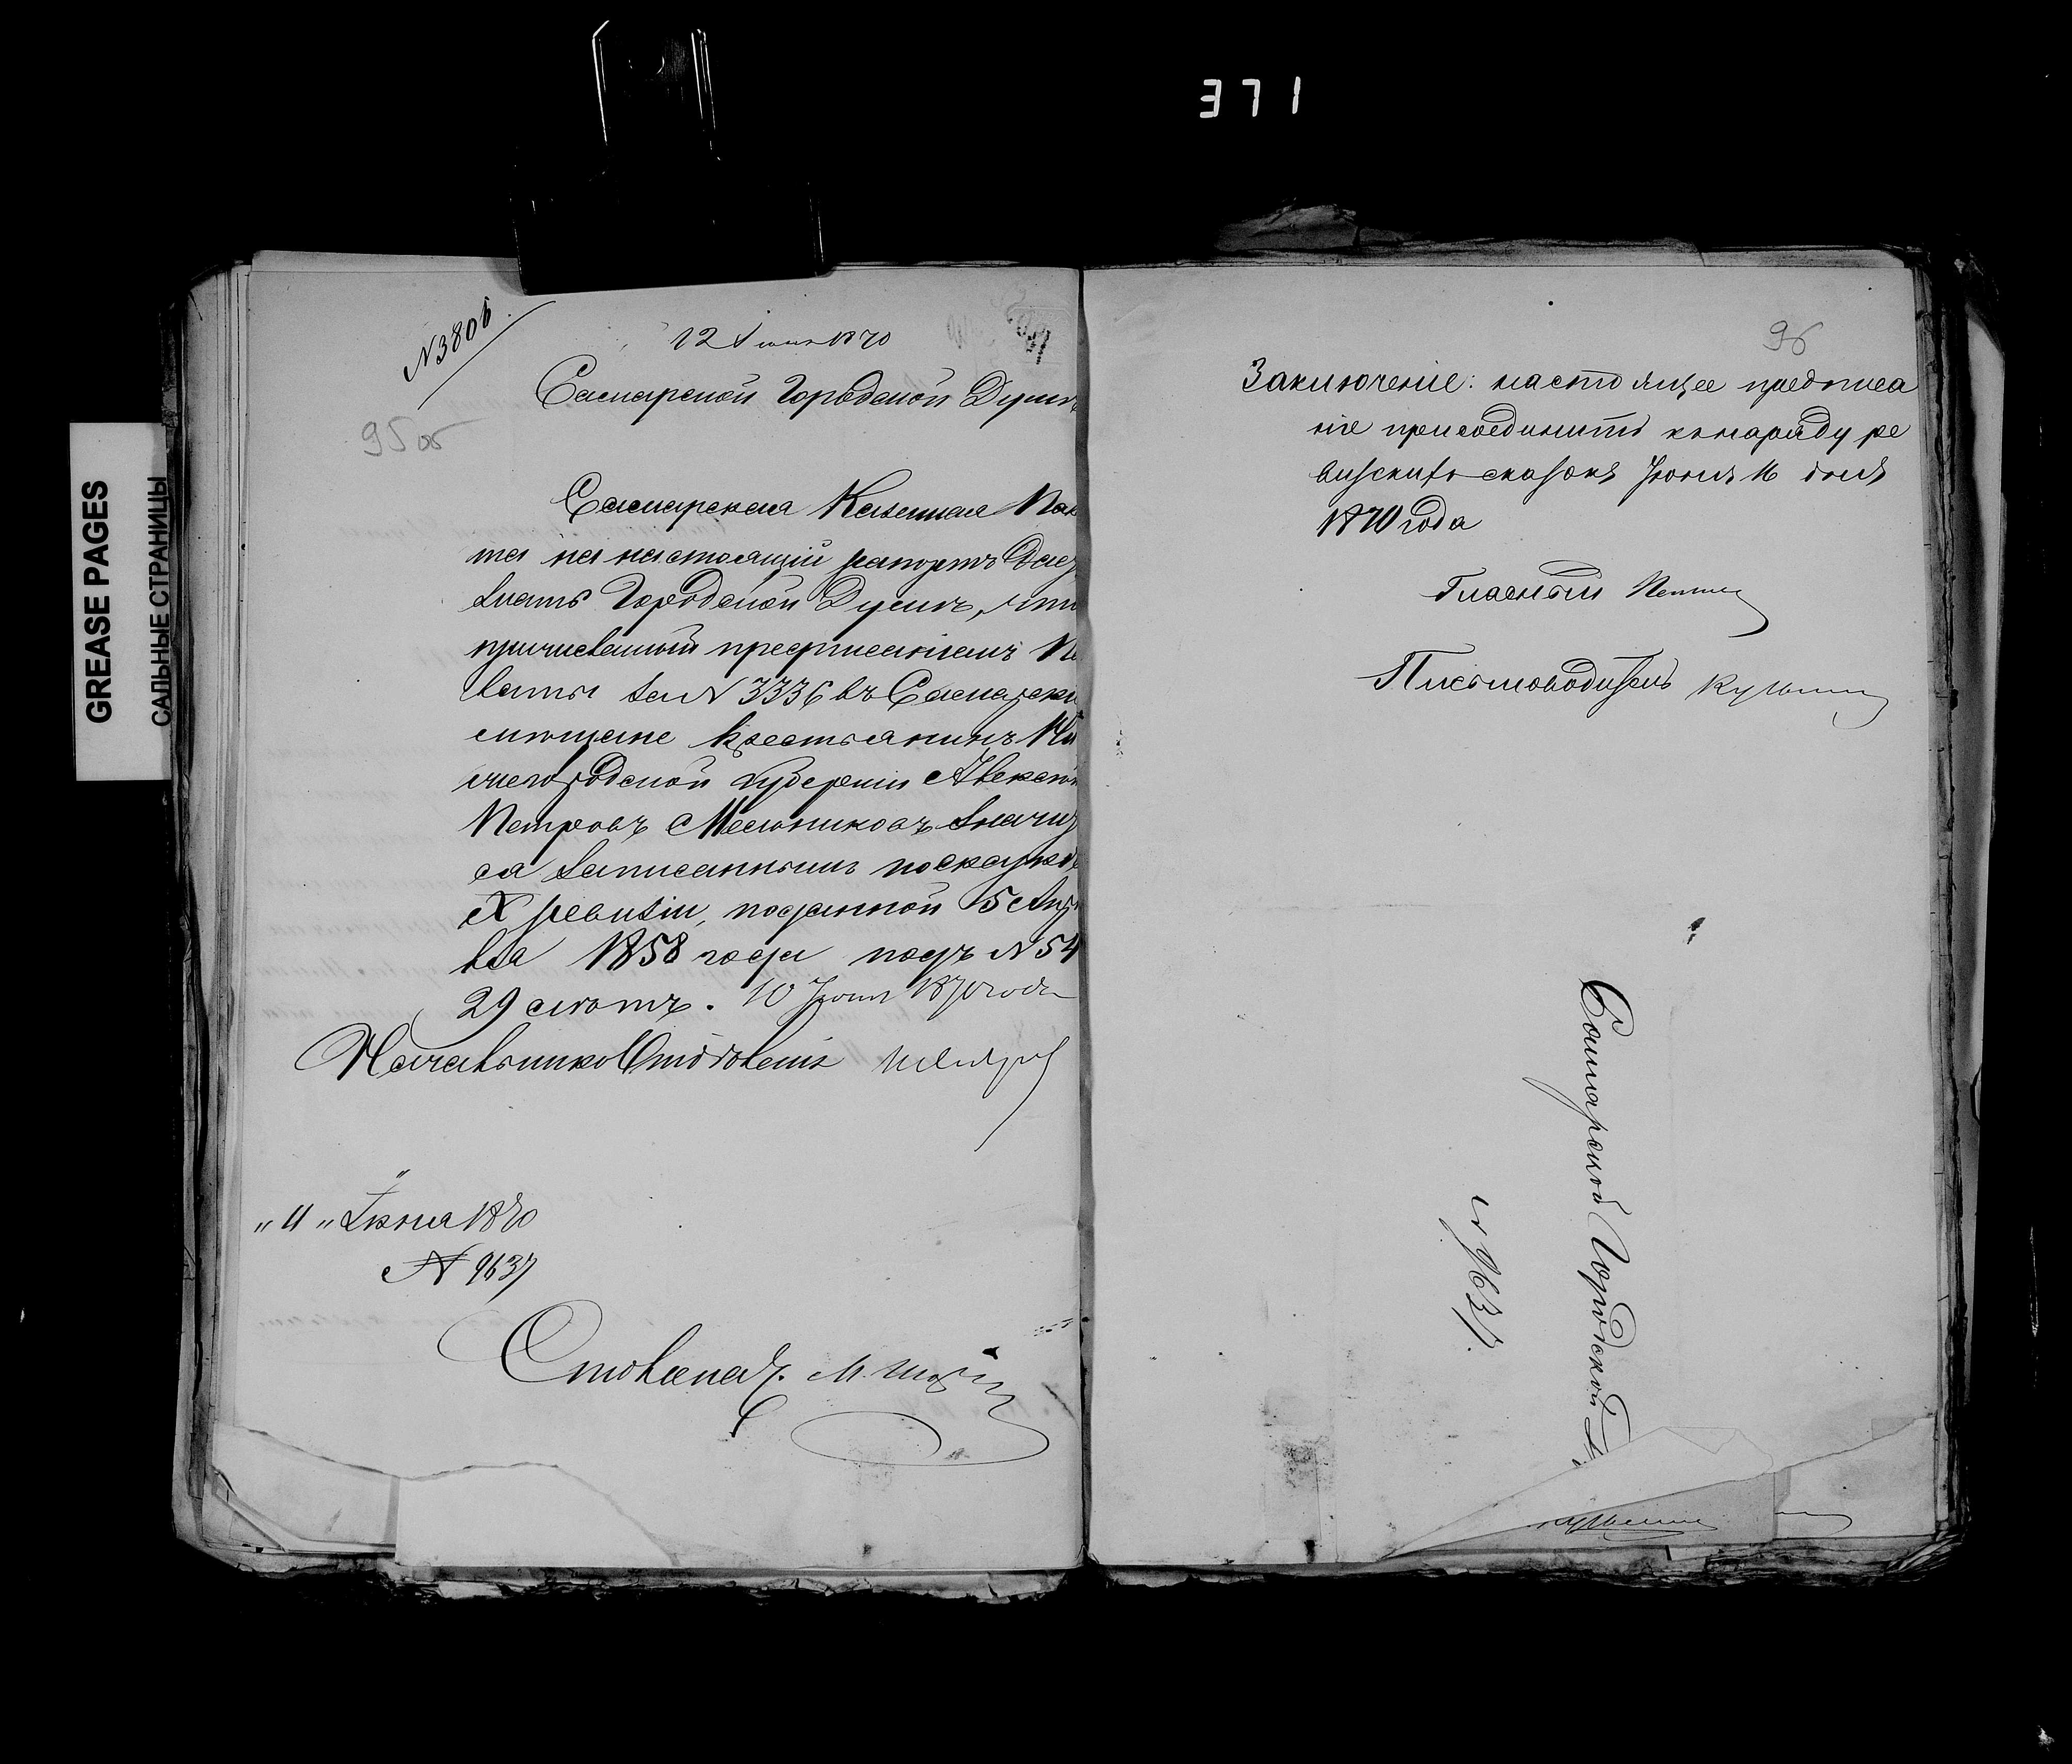 371
GREASE PAGES
САЛЬНЫЕ СТРАНИЦЫ
N 3806.
12 Iюня 1870
95 об
Самарской Городской Думѣ
Самарская Казенная Пала
та на настоящiй рапортъ даетъ
знать Городской Думѣ, что
причисленный предписанiемъ Па
латы за N 3336 въ Самарскi
е мѣщане крестьянинъ Ни
жегородской губернiи Алексѣй
Петровъ Мельниковъ значит
ся записаннымъ по сказкѣ
X ревизiи, поданной 5 Апрѣ
ля 1858 года подъ N 54
29 лѣтъ. 10 Iюня 1870 года
Начальникъ Отдѣленiя
"11" Iюня 1870
N 9637
Столонач. М.
96
Заключенiе: настоящее предписа
нiе присоединить къ наряду ре
визскихъ сказокъ Iюня 16 дня
1870 года
Гласный
Письмоводитель
Самарской Городской
N 9637.